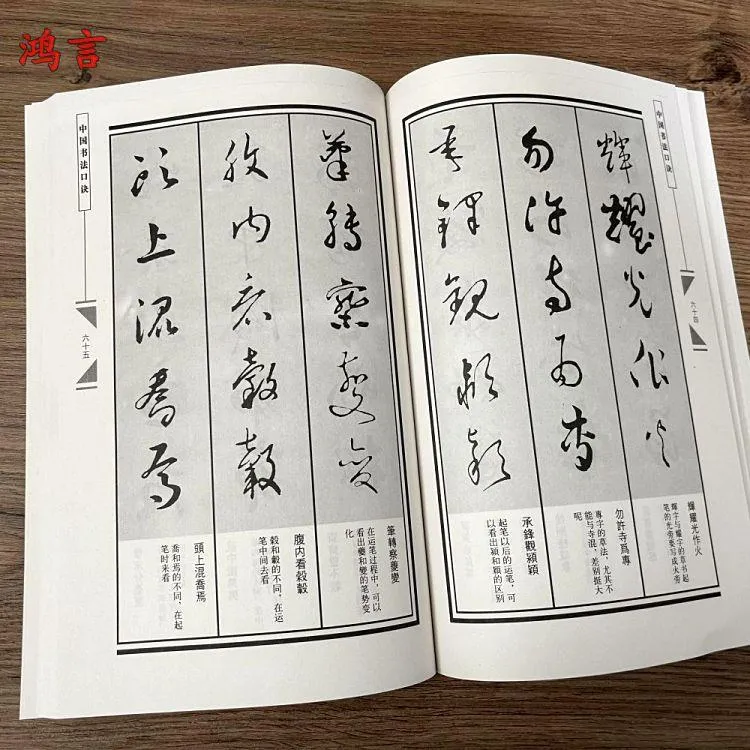 鸿言
中国书法口诀
六十四
輝耀光作火
勿許寺爲專
承鋒觀穎穎
輝耀光作火
輝字与耀字的草书起
笔的光旁要写成火旁
勿許寺爲專
專字的草法，尤其不
能与寺混，差别挺大
呢
承鋒觀潁穎
起笔以后的运笔，可
以看出潁和穎的区别
筆轉察夔變
腹内看穀轂
頭上混喬焉
筆轉察夔變
在运笔过程中，可以
看出夔和變的笔势变
化
腹内看穀轂
穀和轂的不同，在运
笔中间去看
頭上混喬焉
喬和焉的不同，在起
笔时来看
中国书法口诀
六十五